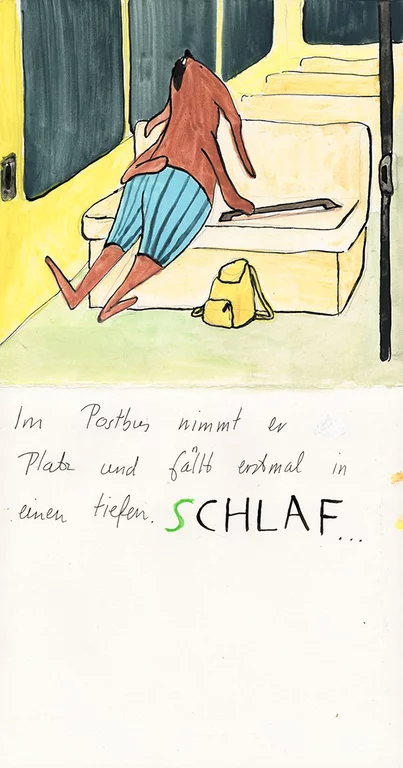 Im Postbus nimmt er
Platz und fällt erstmal in
einen tiefen. SCHLAF...